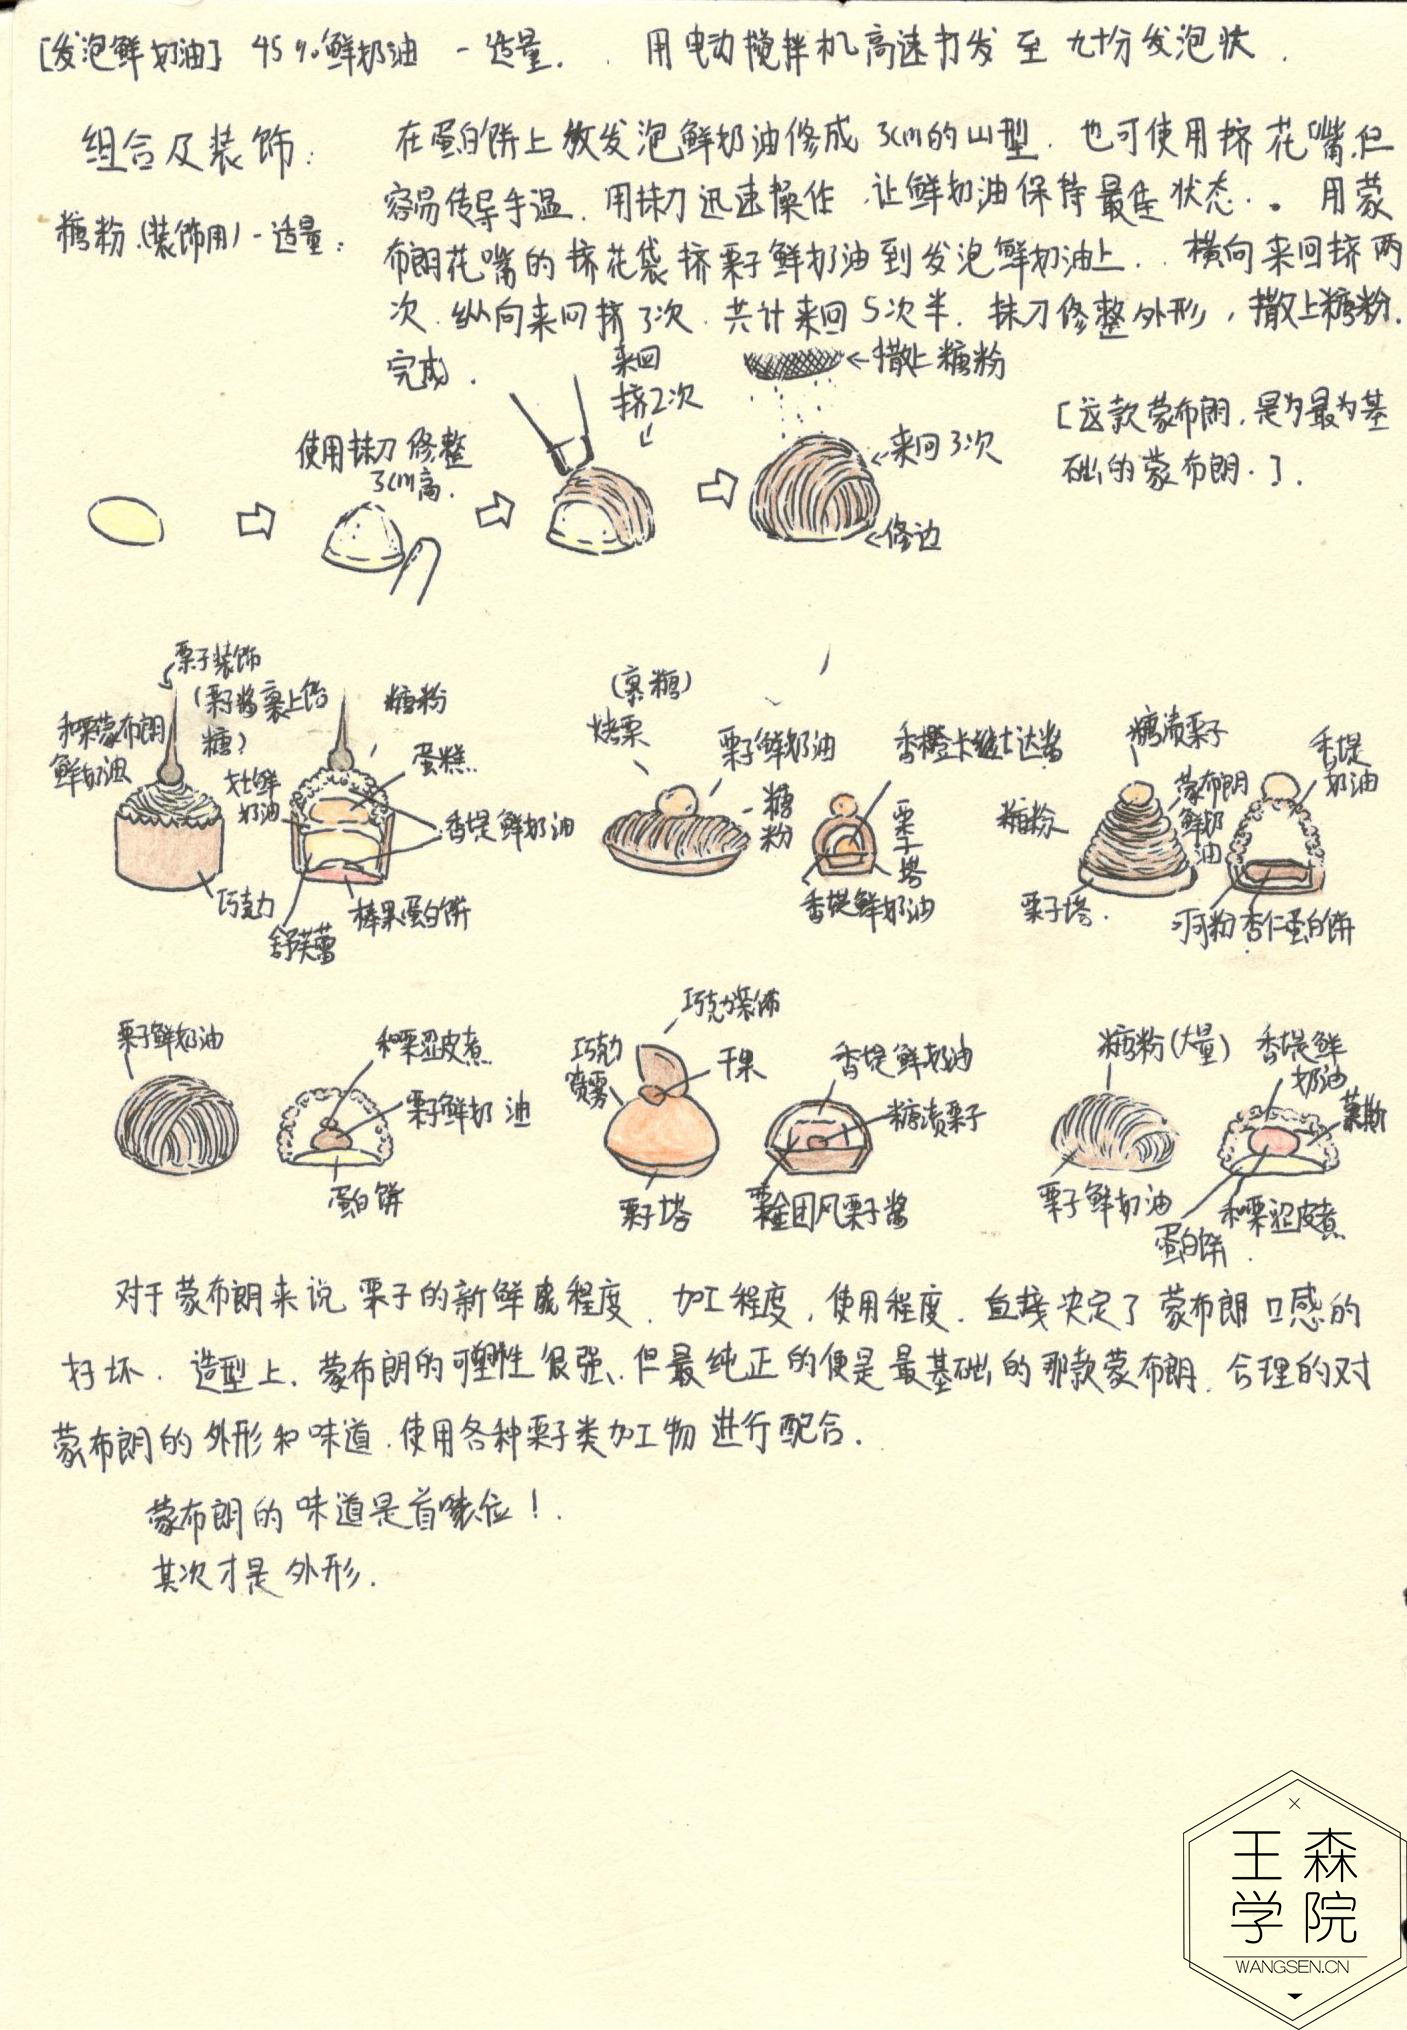 [发泡鲜奶油] 45%鲜奶油 - 适量. 用电动搅拌机高速打发至九十分发泡状.
组合及装饰:
糖粉.(装饰用) - 适量:
在蛋白饼上放发泡鲜奶油修成3cm的山型. 也可使用挤花嘴.但
容易传导手温. 用抹刀迅速操作 .让鲜奶油保持最佳状态. 用蒙
布朗花嘴的挤花袋挤栗子鲜奶油到发泡鲜奶油上. 横向来回挤两
次. 纵向来回挤3次. 共计来回5次半. 抹刀修整外形, 撒上糖粉.
完成.
使用抹刀修整
3cm高.
来回
挤2次
←撒上糖粉
←来回3次
←修边
[这款蒙布朗,是为最为基
础的蒙布朗.].
栗子装饰
(栗子酱裹上饴
糖)
和栗蒙布朗
鲜奶油
鲜
奶油
糖粉
蛋糕.
香堤鲜奶油
巧克力
榛果蛋白饼
舒芙蕾
(裹糖)
烤栗
栗子鲜奶油
糖
粉
香橙卡仕达酱
栗
子
塔
香堤鲜奶油
糖渍栗子
糖粉
蒙布朗
鲜奶
油
栗子塔.
香堤
奶油
杏仁蛋白饼
栗子鲜奶油
和栗涩皮煮
栗子鲜奶油
蛋白饼
巧克力装饰
巧克力
喷雾
干果
栗子塔
香堤鲜奶油
糖渍栗子
栗金团风栗子酱
糖粉(大量)
香堤鲜
奶油
慕斯
栗子鲜奶油
和栗涩皮煮
蛋白饼.
对于蒙布朗来说 栗子的新鲜程度. 加工程度, 使用程度. 直接决定了蒙布朗口感的
好坏. 造型上. 蒙布朗的可塑性很强、但最纯正的便是最基础的那款蒙布朗. 合理的对
蒙布朗的外形和味道.使用各种栗子类加工物进行配合.
蒙布朗的味道是首位!.
其次才是外形.
王森
学院
WANGSEN.CN